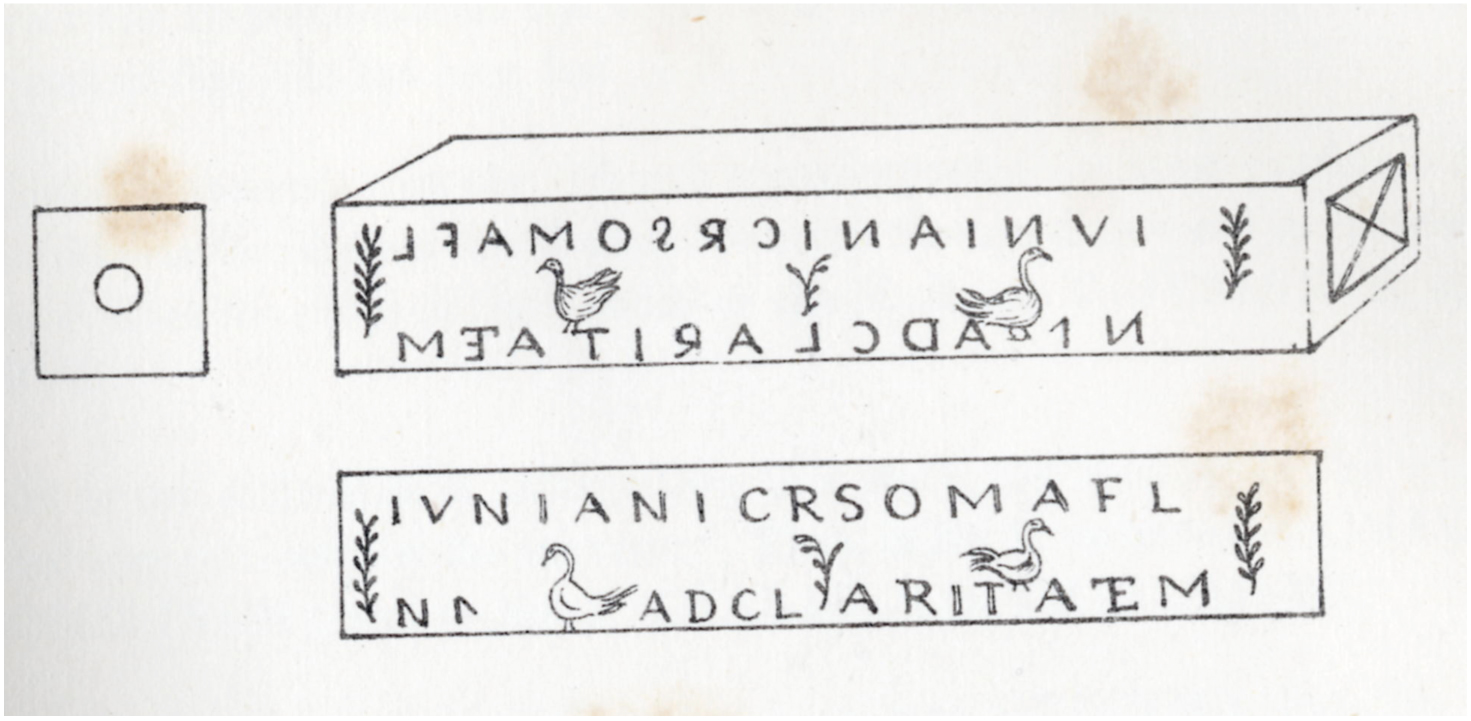 IVNIANICRSOMAFL
ADCLARITATEM
IVNIANICRSOMAFL
ADCLARITATEM